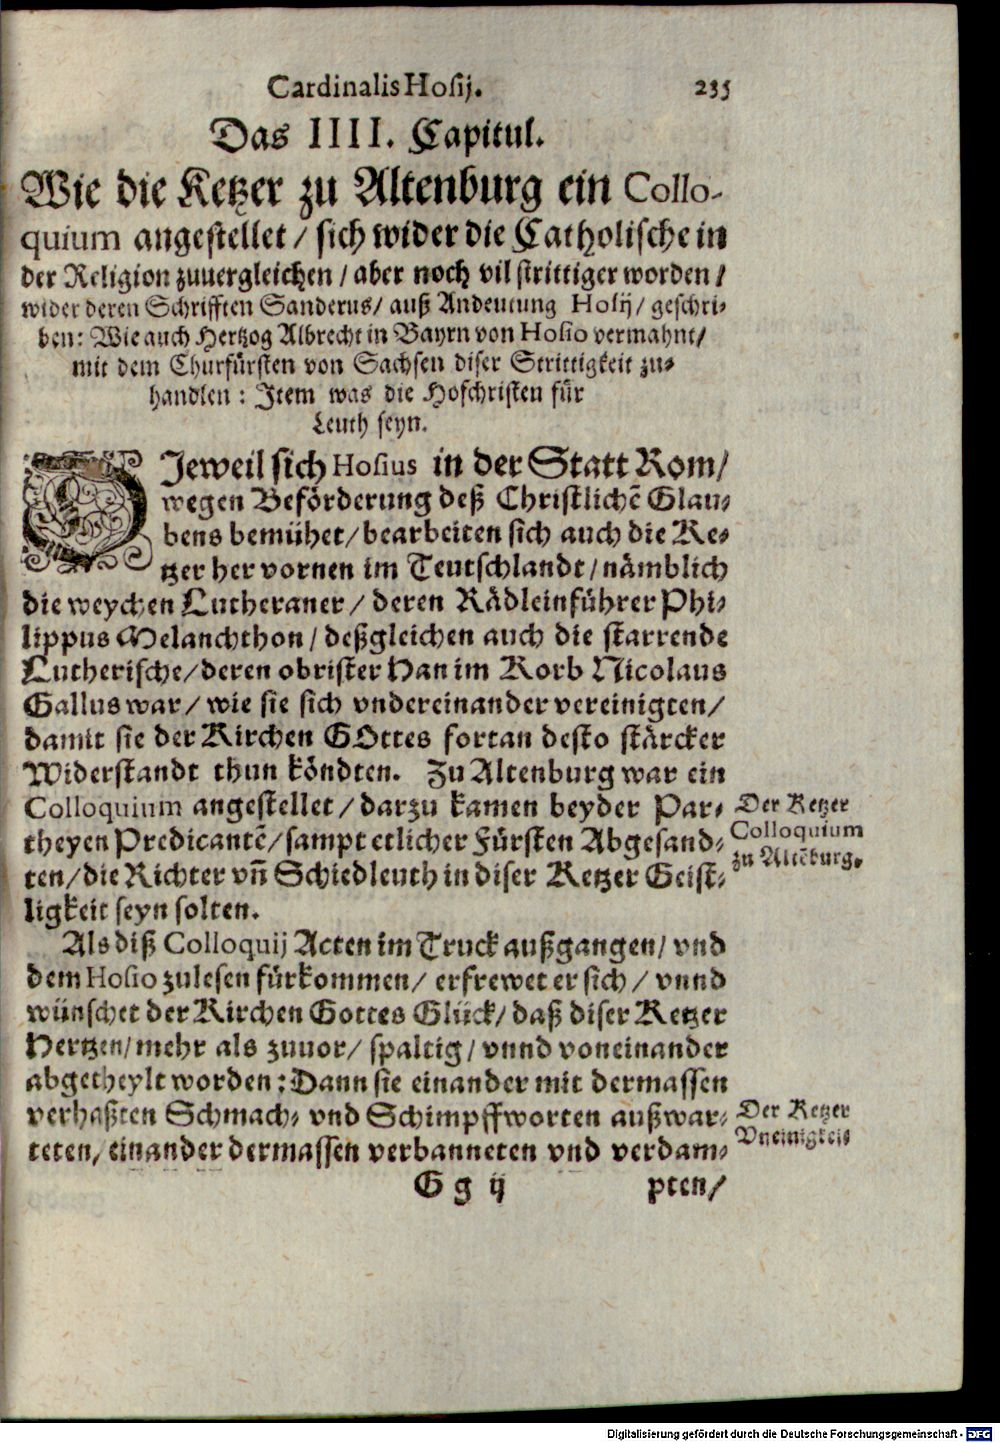 Cardinalis Hosij. 235
Das IIII. Capitul.
Wie die Ketzer zu Altenburg ein Collo-
quium angestellet / sich wider die Catholische in
der Religion zuuergleichen / aber noch vil strittiger worden /
wider deren Schrifften Sanderus / auß Andeutung Hosij / geschri-
ben: Wie auch Hertzog Albrecht in Bayrn von Hosio vermahnt /
mit dem Churfürsten von Sachsen diser Strittigkeit zu-
handlen: Item was die Hofchristen für
Leuth seyn.
DIeweil sich Hosius in der Statt Rom /
wegen Beförderung deß Christlichẽ Glau-
bens bemühet / bearbeiten sich auch die Ke-
tzer her vornen im Teutschlandt / nämblich
die weychen Lutheraner / deren Rädleinführer Phi-
lippus Melanchthon / deßgleichen auch die starrende
Lutherische / deren obrister Han im Korb Nicolaus
Gallus war / wie sie sich vndereinander vereinigten /
damit sie der Kirchen GOttes fortan desto stärcker
Widerstandt thun köndten. Zu Altenburg war ein
Colloquium angestellet / darzu kamen beyder Par-
theyen Predicantẽ / sampt etlicher Fürsten Abgesand-
ten / die Richter vñ Schiedleuth in diser Ketzer Geist-
ligkeit seyn solten.
Der Ketzer
Colloquium
zu Altẽburg.
Als diß Colloquij Acten im Truck außgangen / vnd
dem Hosio zulesen fürkommen / erfrewet er sich / vnnd
wünschet der Kirchen Gottes Glück / daß diser Ketzer
Hertzen / mehr als zuuor / spaltig / vnnd voneinander
abgetheylt worden: Dann sie einander mit dermassen
verhaßten Schmach- vnd Schimpffworten außwar-
teten, einander dermassen verbanneten vnd verdam-
Der Ketzer
Vneinigkeit
G g ij pten /
Digitalisierung gefördert durch die Deutsche Forschungsgemeinschaft - DFG